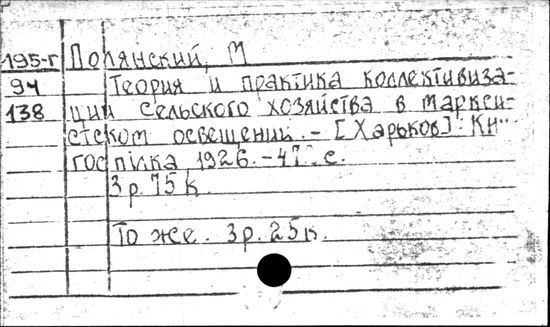 195-г Полянский, М
94 Теория и практика коллективиза-
138 ции сельского хозяйства в маркси-
стском освещении. - [Харьков]: Кни
госпілка 1926. - 47 с.
3 р. 75 к.
То же. 3 р. 25 к.